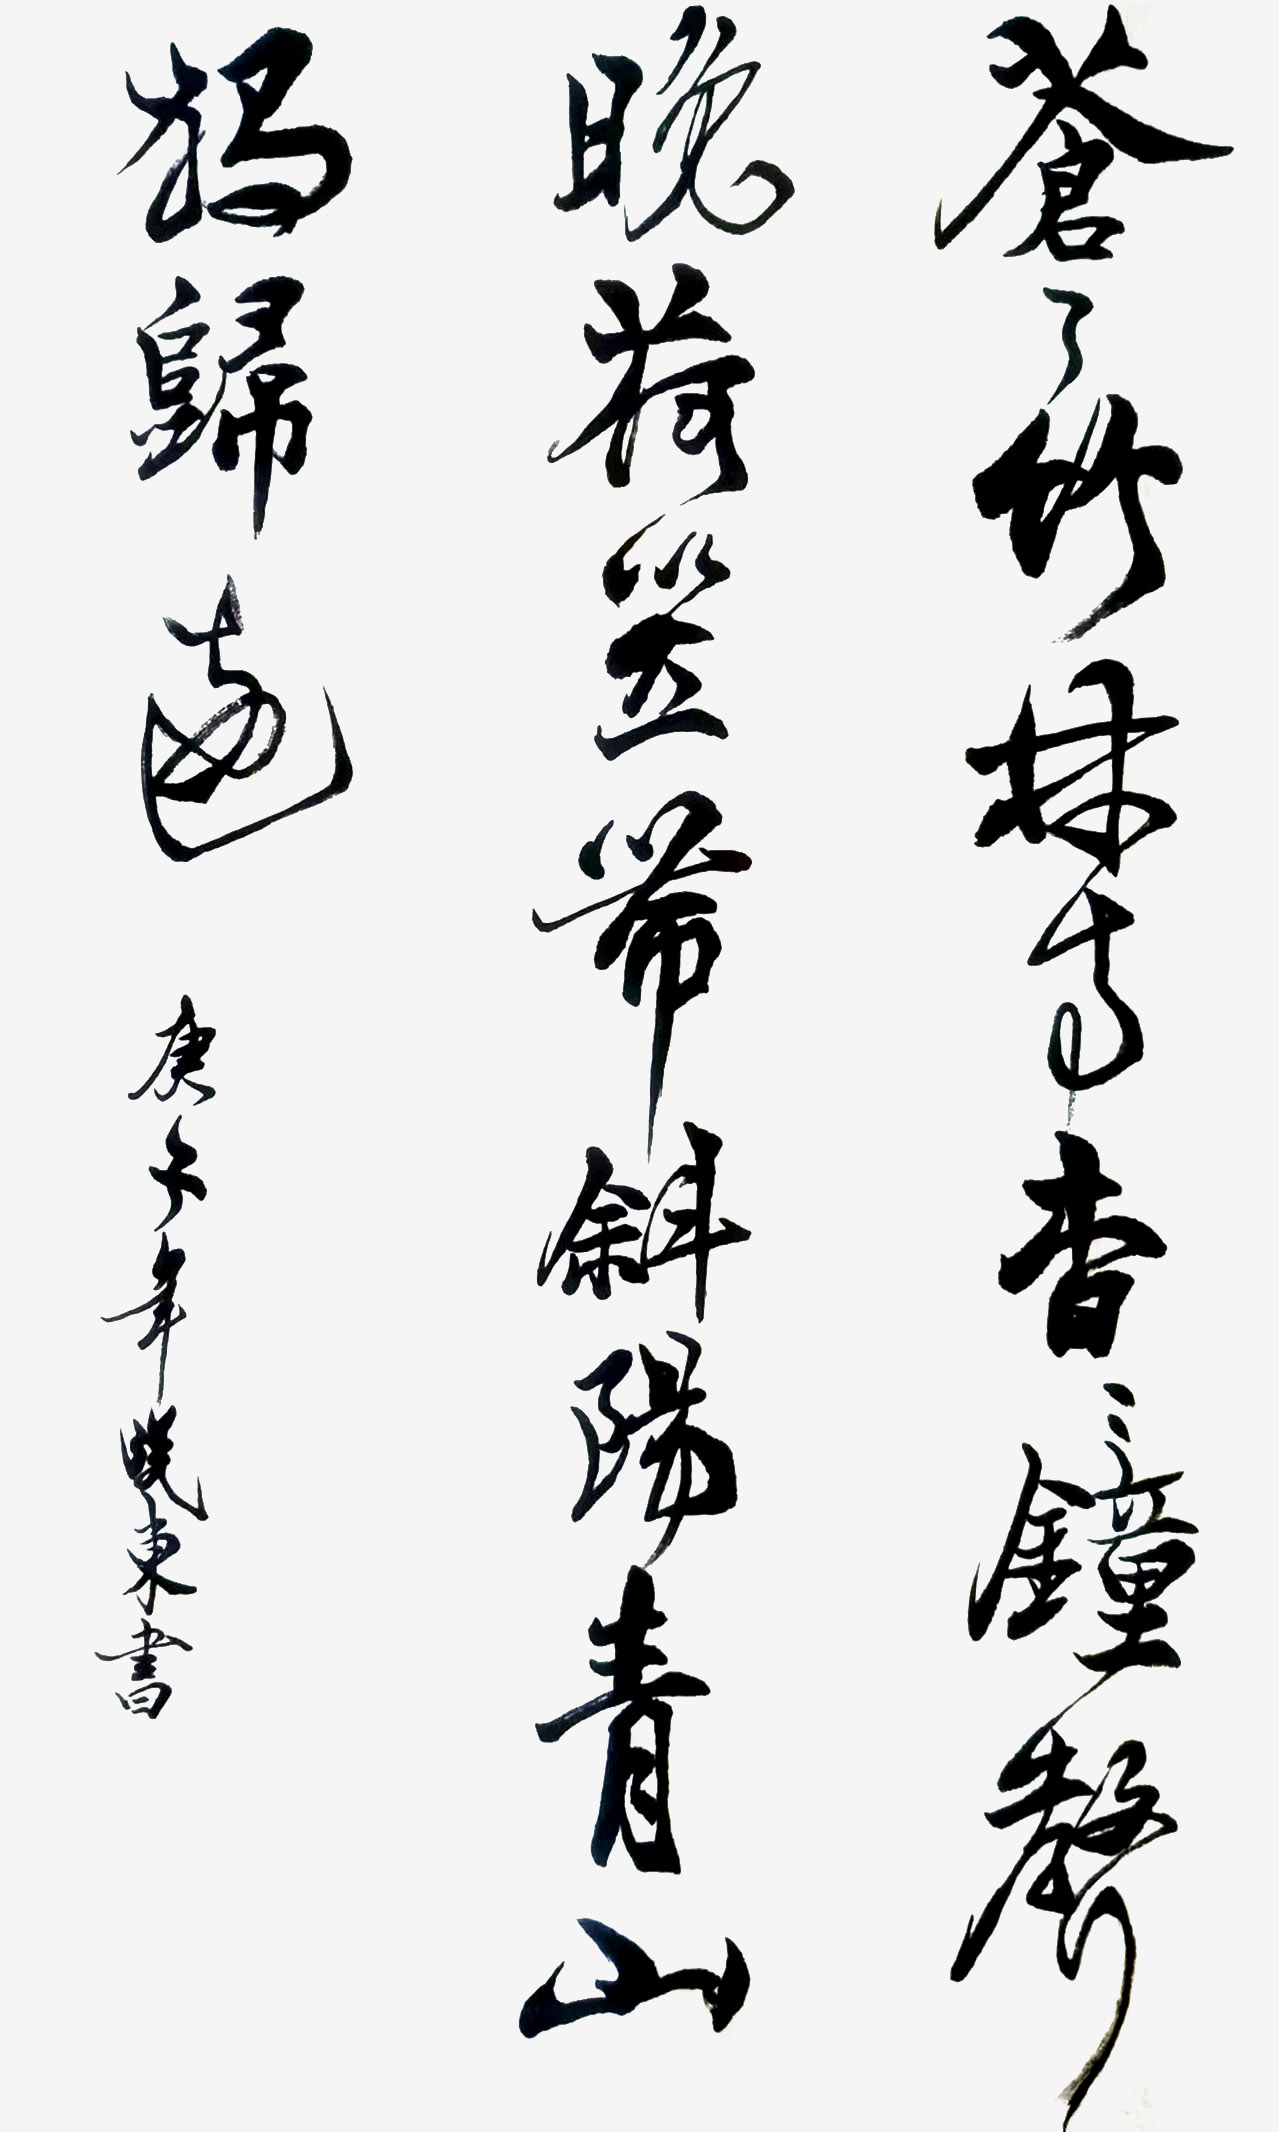 蒼〻竹林寺杳〻鐘聲
晚荷笠帶斜陽青山
獨歸遠 庚子年曉東書